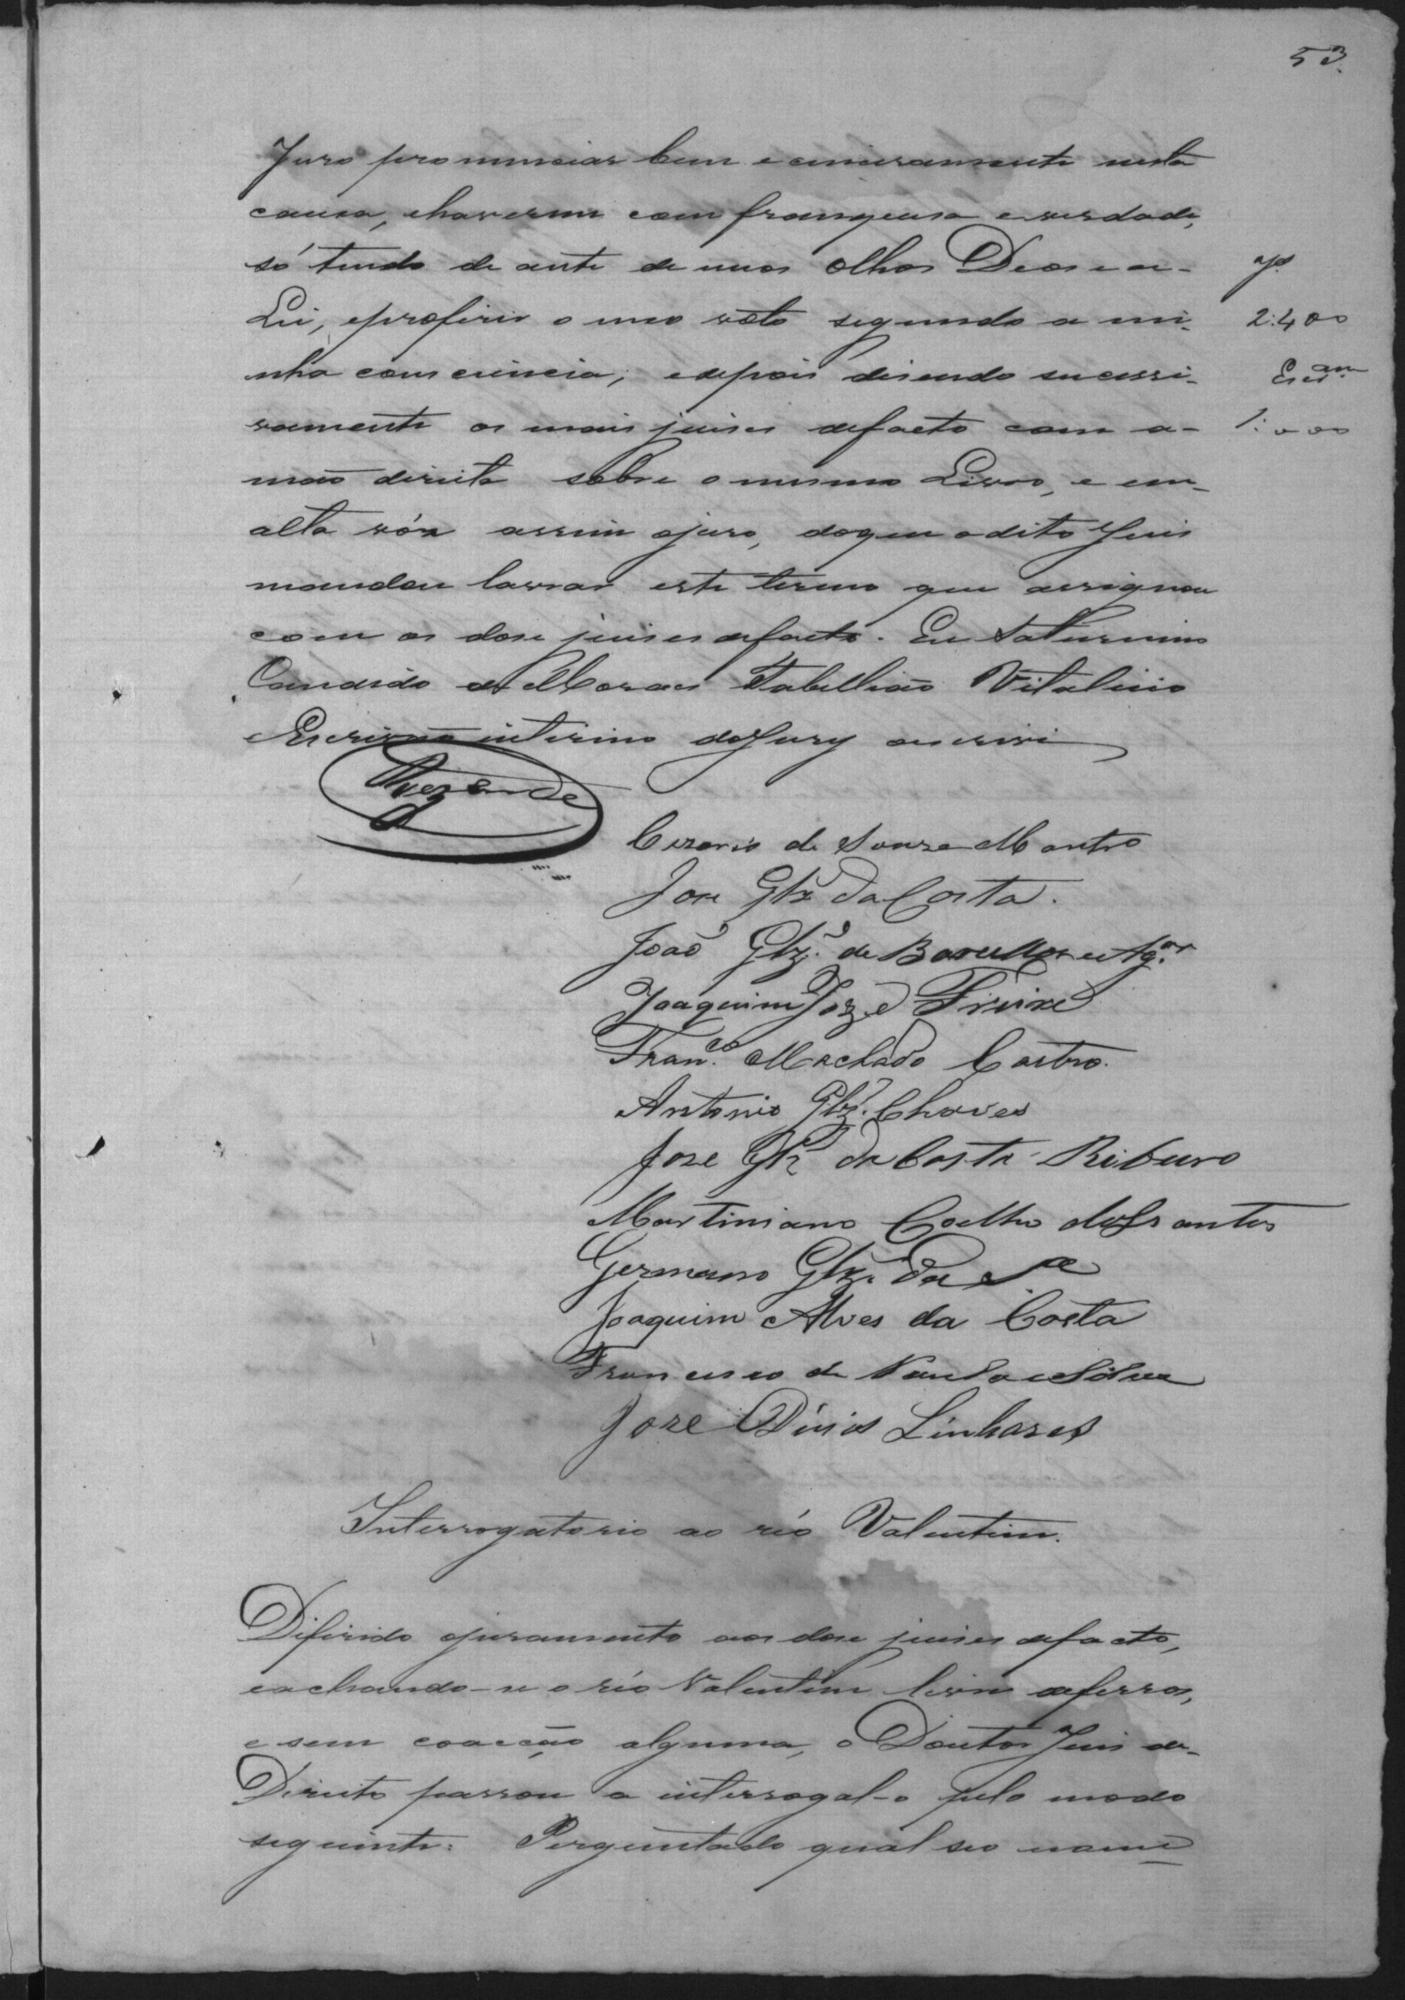 53.
Juro pronunciar bem e sinceramente nesta
causa, e haverme com franquesa e verdade,
só tendo de ante de meos olhos Deos e a
Lei, e proferir o meo voto segundo a mi-
nha consciencia; e depois disendo successi-
vamente os mais juises de facto com a
mão direita sobre o mesmo Livro, e em
alta vós assim o juro, do que o dito Juis
mandou lavrar este termo que assignou
com os dose juises de facto. Eu Saturnino
Candido de Moraes Tabellião Vitalicio
Escrivão interino do Jury o escrivi
Jº
2:400
Escam
1:000
Rezende
Cezario de Souza Montro
Jose Glz da Costa.
João Glz. de Barcellos e Agar
Joaquim Joze Freire
Franco. Machado Castro.
Antonio Glz. Chaves
Jose Glz da Costa Ribeiro
Martiniano Coelho dos Santos
Germano Glz. da Sa
Joaquim Alves da Costa
Francisco de Paula e Silva
Joze Dinis Linhares
Interrogatorio ao réo Valentim.
Diferido o juramento aos dose juises de facto,
e achando-se o réo Valentim livre de ferros,
e sem coacção alguma, o Doutor Juis de
Direito passou a interrogal-o pelo modo
seguinte: Perguntado qual seo nome